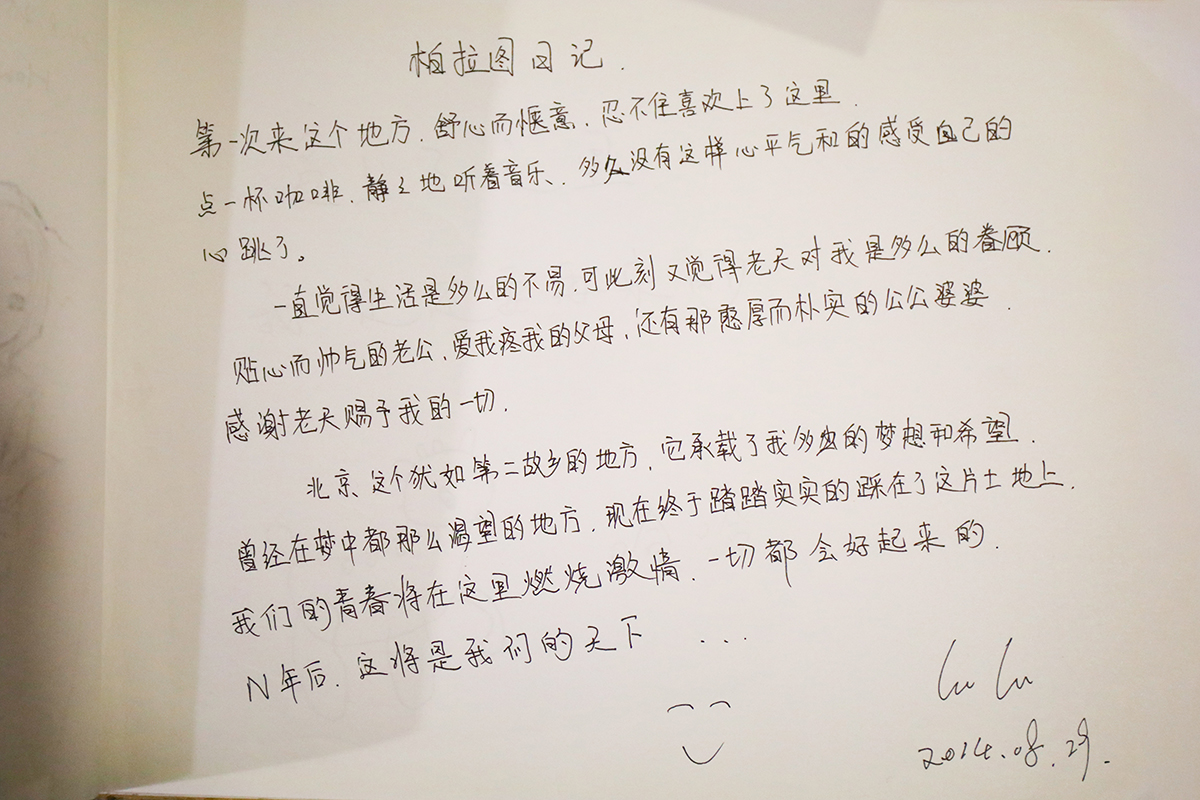 柏拉图日记.
第一次来这个地方.舒心而惬意.忍不住喜欢上了这里.
点一杯咖啡.静々地听着音乐、多久没有这样心平气和的感受自己的
心跳了。
一直觉得生活是多么的不易.可此刻又觉得老天对我是多么的眷顾.
贴心而帅气的老公、爱我疼我的父母、还有那憨厚而朴实的公公婆婆.
感谢老天赐予我的一切.
北京、这个犹如第二故乡的地方、它承载了我多少的梦想和希望.
曾经在梦中都那么渴望的地方.现在终于踏踏实实的踩在了这片土地上.
我们的青春将在这里燃烧激情.一切都会好起来的.
N年后.这将是我们的天下...
Lu Lu
2014.08.29.